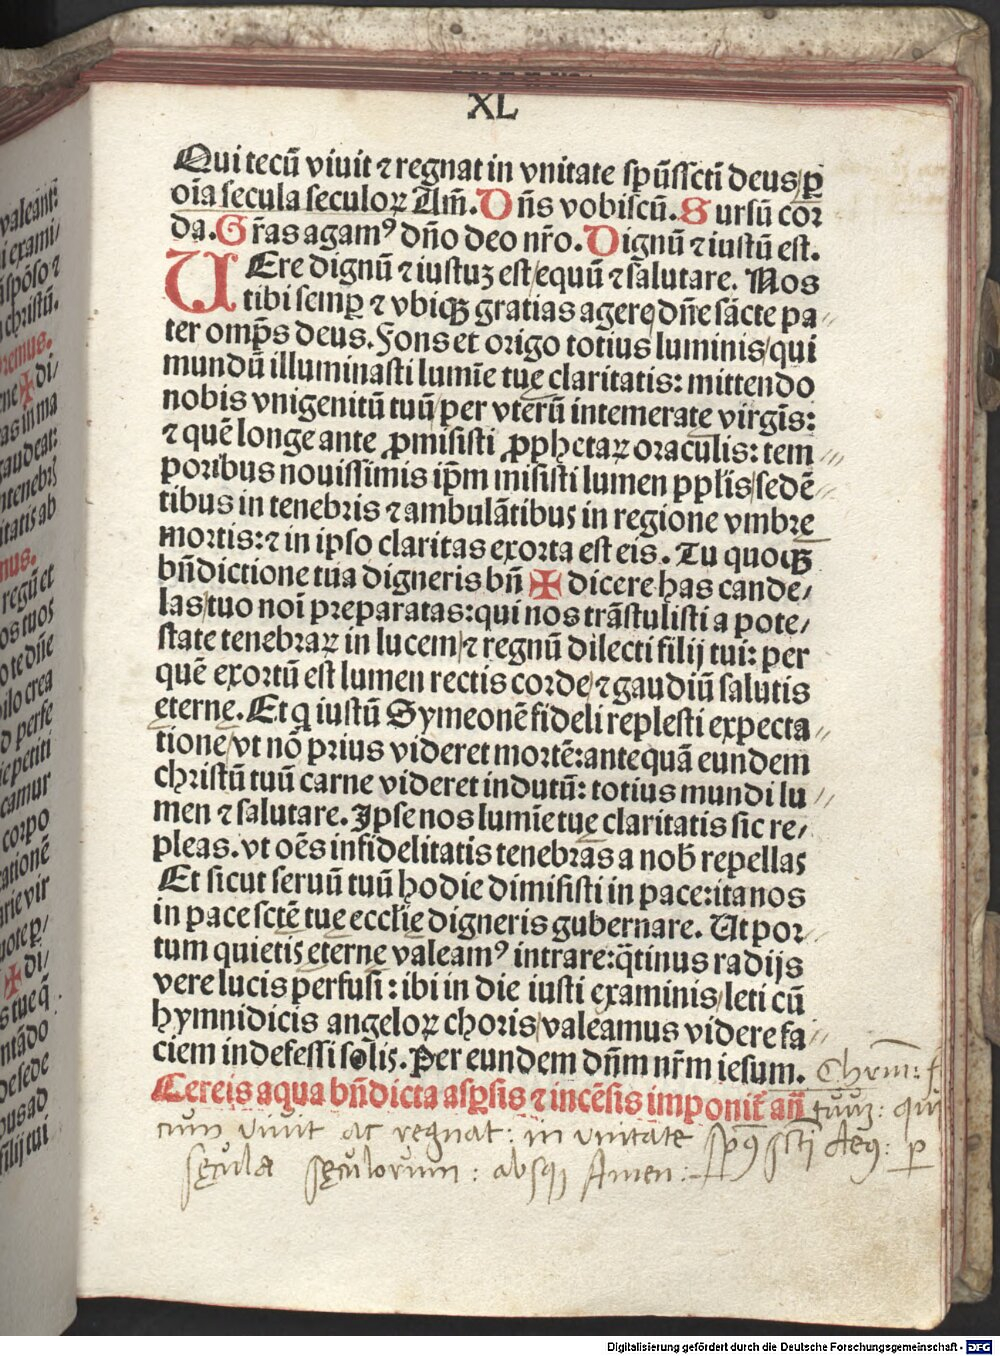 XL
Qui tecū viuit ⁊ regnat in vnitate sp̄ūssctī deus/ꝑ
oīa secula seculoꝝ Am̄. Dn̄s vobiscū. Sursū cor
da. Gr̄as agamꝰ dn̄o deo nr̄o. Dignū ⁊ iustū est.
UEre dignū ⁊ iustuz est/equū ⁊ salutare. Nos
tibi semꝑ ⁊ vbiqꝫ gratias agere dn̄e sācte pa//
ter omp̄s deus. Fons et origo totius luminis/qui
mundū illuminasti lumīe tuę claritatis: mittendo
nobis vnigenitū tuū/per vterū intemeratę virgīs:
⁊ quē longe ante ꝓmisisti ꝓphetaꝝ oraculis: tem//
poribus nouissimis ip̄m misisti lumen pplīs/sedē//
tibus in tenebris ⁊ ambulātibus in regione vmbrę
mortis: ⁊ in ipso claritas exorta est eis. Tu quoqꝫ
bn̄dictione tua digneris bn̄ ✠ dicere has cande/
las/tuo noī preparatas: qui nos trāstulisti a pote/
state tenebraꝝ in lucem/⁊ regnū dilecti filij tui: per
quē exortū est lumen rectis corde/⁊ gaudiū salutis
ęternę. Et q iustū Symeonē fideli replesti expecta//
tione/vt nō prius videret mortē: antequā eundem
christū tuū carne videret indutū: totius mundi lu//
men ⁊ salutare. Ipse nos lumīe tuę claritatis sic re/
pleas. vt oēs infidelitatis tenebras a nob̄ repellas
Et sicut seruū tuū hodie dimisisti in pace: ita nos
in pace sctę̄ tuę ecclīę digneris gubernare. Ut por//
tum quietis ęternę valeamꝰ intrare: q̄tinus radijs
vere lucis perfusi: ibi in die iusti examinis/leti cū
hymnidicis angeloꝝ choris/valeamus videre fa//
ciem indefessi solis. Per eundem dn̄m nr̄m iesum. Chrm̄: f.
Cereis aqua bn̄dicta aspsis ⁊ incēsis imponit̄ an̄ tuuz: qui
cum viuit ac regnat: in vnitate spūs sctī deus: p
sęcula sęculorum: absqꝫ Amen:
valeant:
ni exami/
christū.
remus.
ne ✠ di/
as in ma
gaudeat:
ntenebris
itatis ab
mus.
regū et
os tuos
o te dn̄e
ilo crea
d perfe
ic petiti
camur
corpo
cationē
arie vir
✠ di/
s tuę q̄
ntādo
de sede
pus ad
filij tui
Digitalisierung gefördert durch die Deutsche Forschungsgemeinschaft - DFG